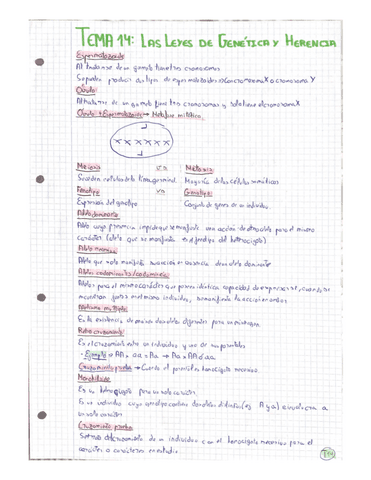 TEMA 14: LAS LEYES DE GENÉTICA Y HERENCIA
Espermatozoide
Al tratarse de un gameto tiene tres cromosomas
Se pueden producir dos tipos de espermatozoides: con cromosoma X o cromosoma Y
Óvulo
Al tratarse de un gameto tiene tres cromosomas y solo tiene el cromosoma X
Óvulo + Espermatozoide → Metafase mitótica.
X X X X X X
Meiosis vs Mitosis
Suceden células de la línea germinal. Mayoría de las células somáticas
Fenotipo vs Genotipo
Expresión del genotipo Conjunto de genes de un individuo.
Alelo dominante
Alelo cuya presencia impide que se manifieste una acción de otro alelo para el mismo
carácter (alelo que se manifiesta en el fenotipo del heterocigoto)
Alelo recesivo
Alelo que solo manifiesta su acción en ausencia de un alelo dominante
Alelos codominantes/
Alelos para el mismo carácter que poseen idéntica capacidad de expresarse y, cuando se
encuentran juntos en el mismo individuo, se manifiesta la acción de ambos
Alelismo múltiple
Es la existencia de más de dos alelos diferentes para un mismo gen
Retrocruzamiento
Es el cruzamiento entre un individuo y uno de sus parentales
- Ejemplo → AA x aa = Aa → Aa x AA ó aa
Cruzamiento prueba → Cuando el parental es homocigoto recesivo
Monohíbrido
Es un heterocigoto para un solo carácter.
Es un individuo cuyo genotipo contiene dos alelos distintos (ej. A y a) en un
solo carácter
Cruzamiento prueba
Se trata del cruzamiento de un individuo con el homocigoto recesivo para el
carácter o caracteres en estudio